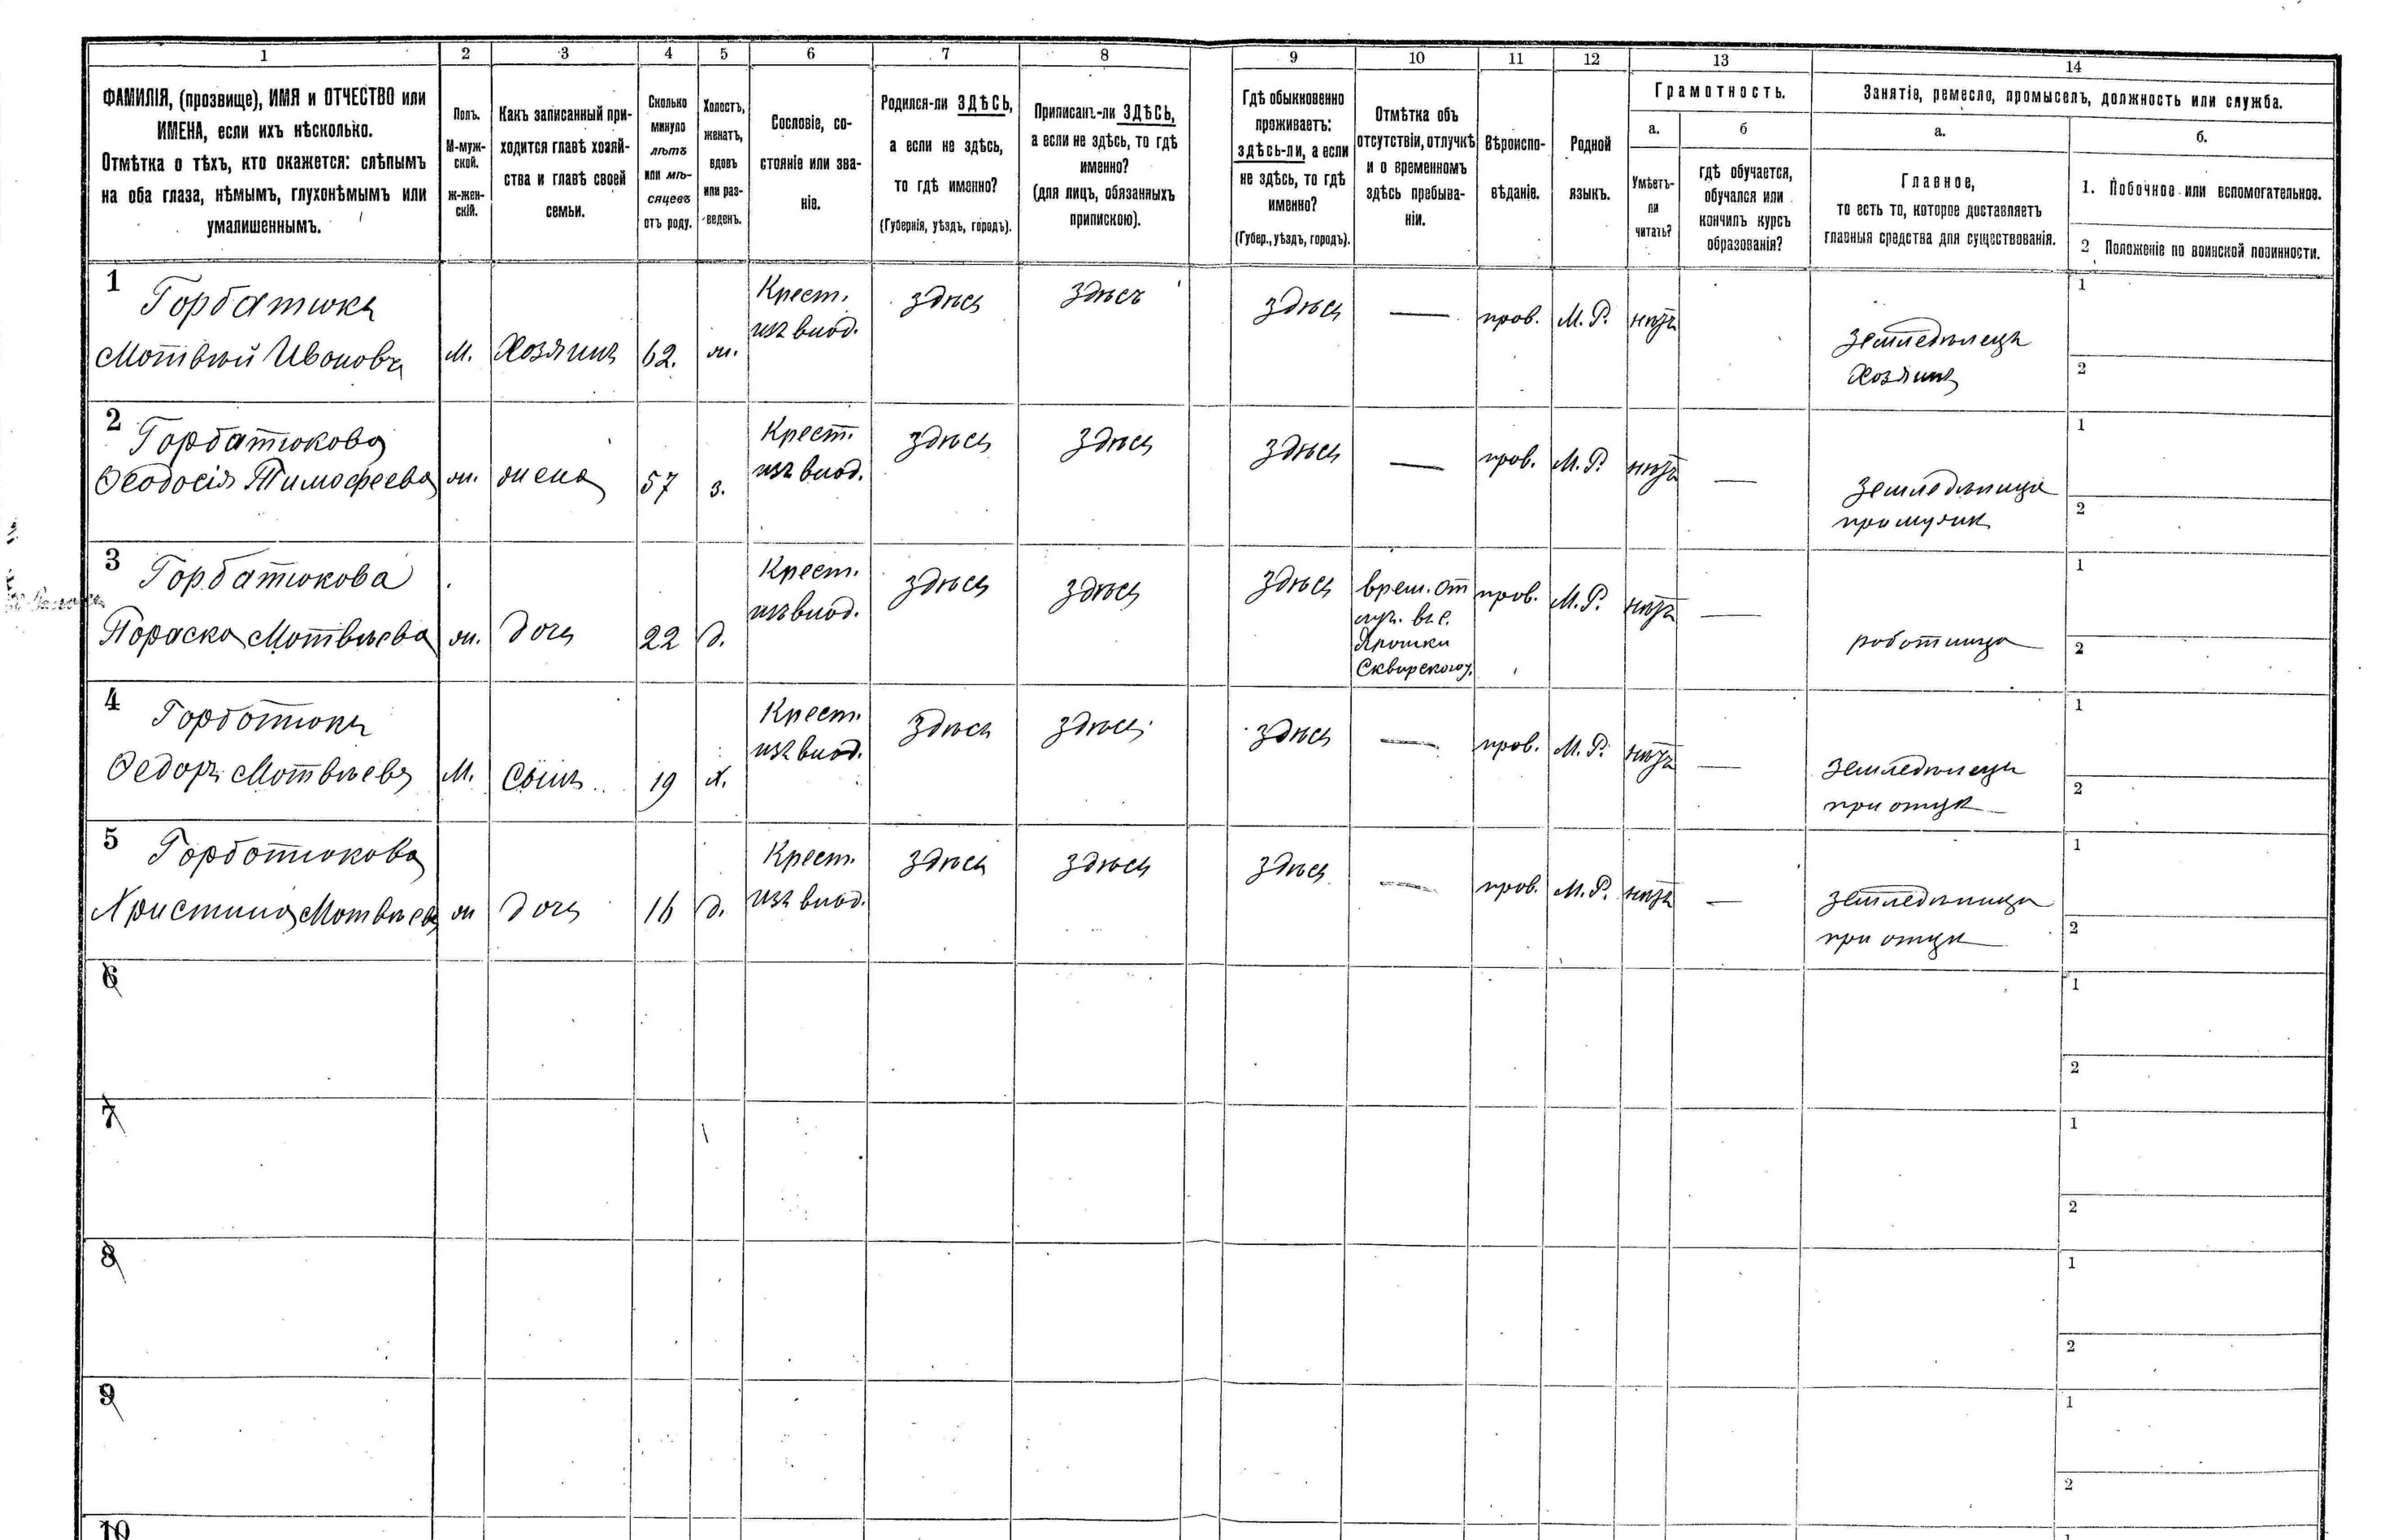 1 2 3 4 5 6 7 8 9 10 11 12 13 14
ФАМИЛІЯ, (прозвище), ИМЯ и ОТЧЕСТВО или
ИМЕНА, если ихъ нѣсколько.
Отмѣтка о тѣхъ, кто окажется: слѣпымъ
на оба глаза, нѣмымъ, глухонѣмымъ или
умалишеннымъ.
Полъ.
М-муж-
ской.
Ж-жен-
скій.
Какъ записанный при-
ходится главѣ хозяй-
ства и главѣ своей
семьи.
Сколько
минуло
лѣтъ
или мѣ-
сяцевъ
отъ роду.
Холостъ,
женатъ,
вдовъ
или раз-
веденъ.
Сословіе, со-
стояніе или зва-
ніе.
Родился-ли ЗДѢСЬ,
а если не здѣсь,
то гдѣ именно?
(Губернія, уѣздъ, городъ).
Приписанъ-ли ЗДѢСЬ,
а если не здѣсь, то гдѣ
именно?
(для лицъ, обязанныхъ
припискою).
Гдѣ обыкновенно
проживаетъ:
здѣсь-ли, а если
не здѣсь, то гдѣ
именно?
(Губер., уѣздъ, городъ).
Отмѣтка объ
отсутствіи, отлучкѣ
и о временномъ
здѣсь пребыва-
ніи.
Вѣроиспо-
вѣданіе.
Родной
языкъ.
Грамотность.
а.
Умѣетъ-
ли
читать?
б
гдѣ обучается,
обучался или
кончилъ курсъ
образованія?
Занятіе, ремесло, промыселъ, должность или служба.
а.
Главное,
то есть то, которое доставляетъ
главныя средства для существованія.
б.
1. Побочное или вспомогательное.
2 Положеніе по воинской повинности.
1
Горбатюкъ
Мотвѣй Ивановъ
М.
Хозяинъ
62.
ж.
Крест.
изъ влад.
здѣсь
здѣсь
здѣсь
—
прав.
М. Р.
нѣтъ
Земледѣлецъ
Хозяинъ
1
2
2
Горбатюкова
Ѳеодосія Тимофеева
ж.
жена
57
з.
Крест.
изъ влад.
здѣсь
здѣсь
здѣсь
—
прав.
М. Р.
нѣтъ
—
Земледѣлица
при мужѣ
1
2
3
Горбатюкова
Параска Мотвѣева
ж.
дочь
22
д.
Крест.
изъ влад.
здѣсь
здѣсь
здѣсь
врем. от
луч. въ с.
Ярошки
Сквирского у.
прав.
М. Р.
нѣтъ
—
работница
1
2
4
Горбатюкъ
Ѳедоръ Мотвѣевъ
М.
Сынъ
19
х.
Крест.
изъ влад.
здѣсь
здѣсь
здѣсь
—
прав.
М. Р.
нѣтъ
—
Земледѣлецъ
при отцѣ
1
2
5
Горбатюкова
Христина Мотвѣева
ж
дочь
16
д.
Крест.
изъ влад.
здѣсь
здѣсь
здѣсь
—
прав.
М. Р.
нѣтъ
—
Земледѣлица
при отцѣ
1
2
6
1
2
7
1
2
8
1
2
9
1
2
10
1